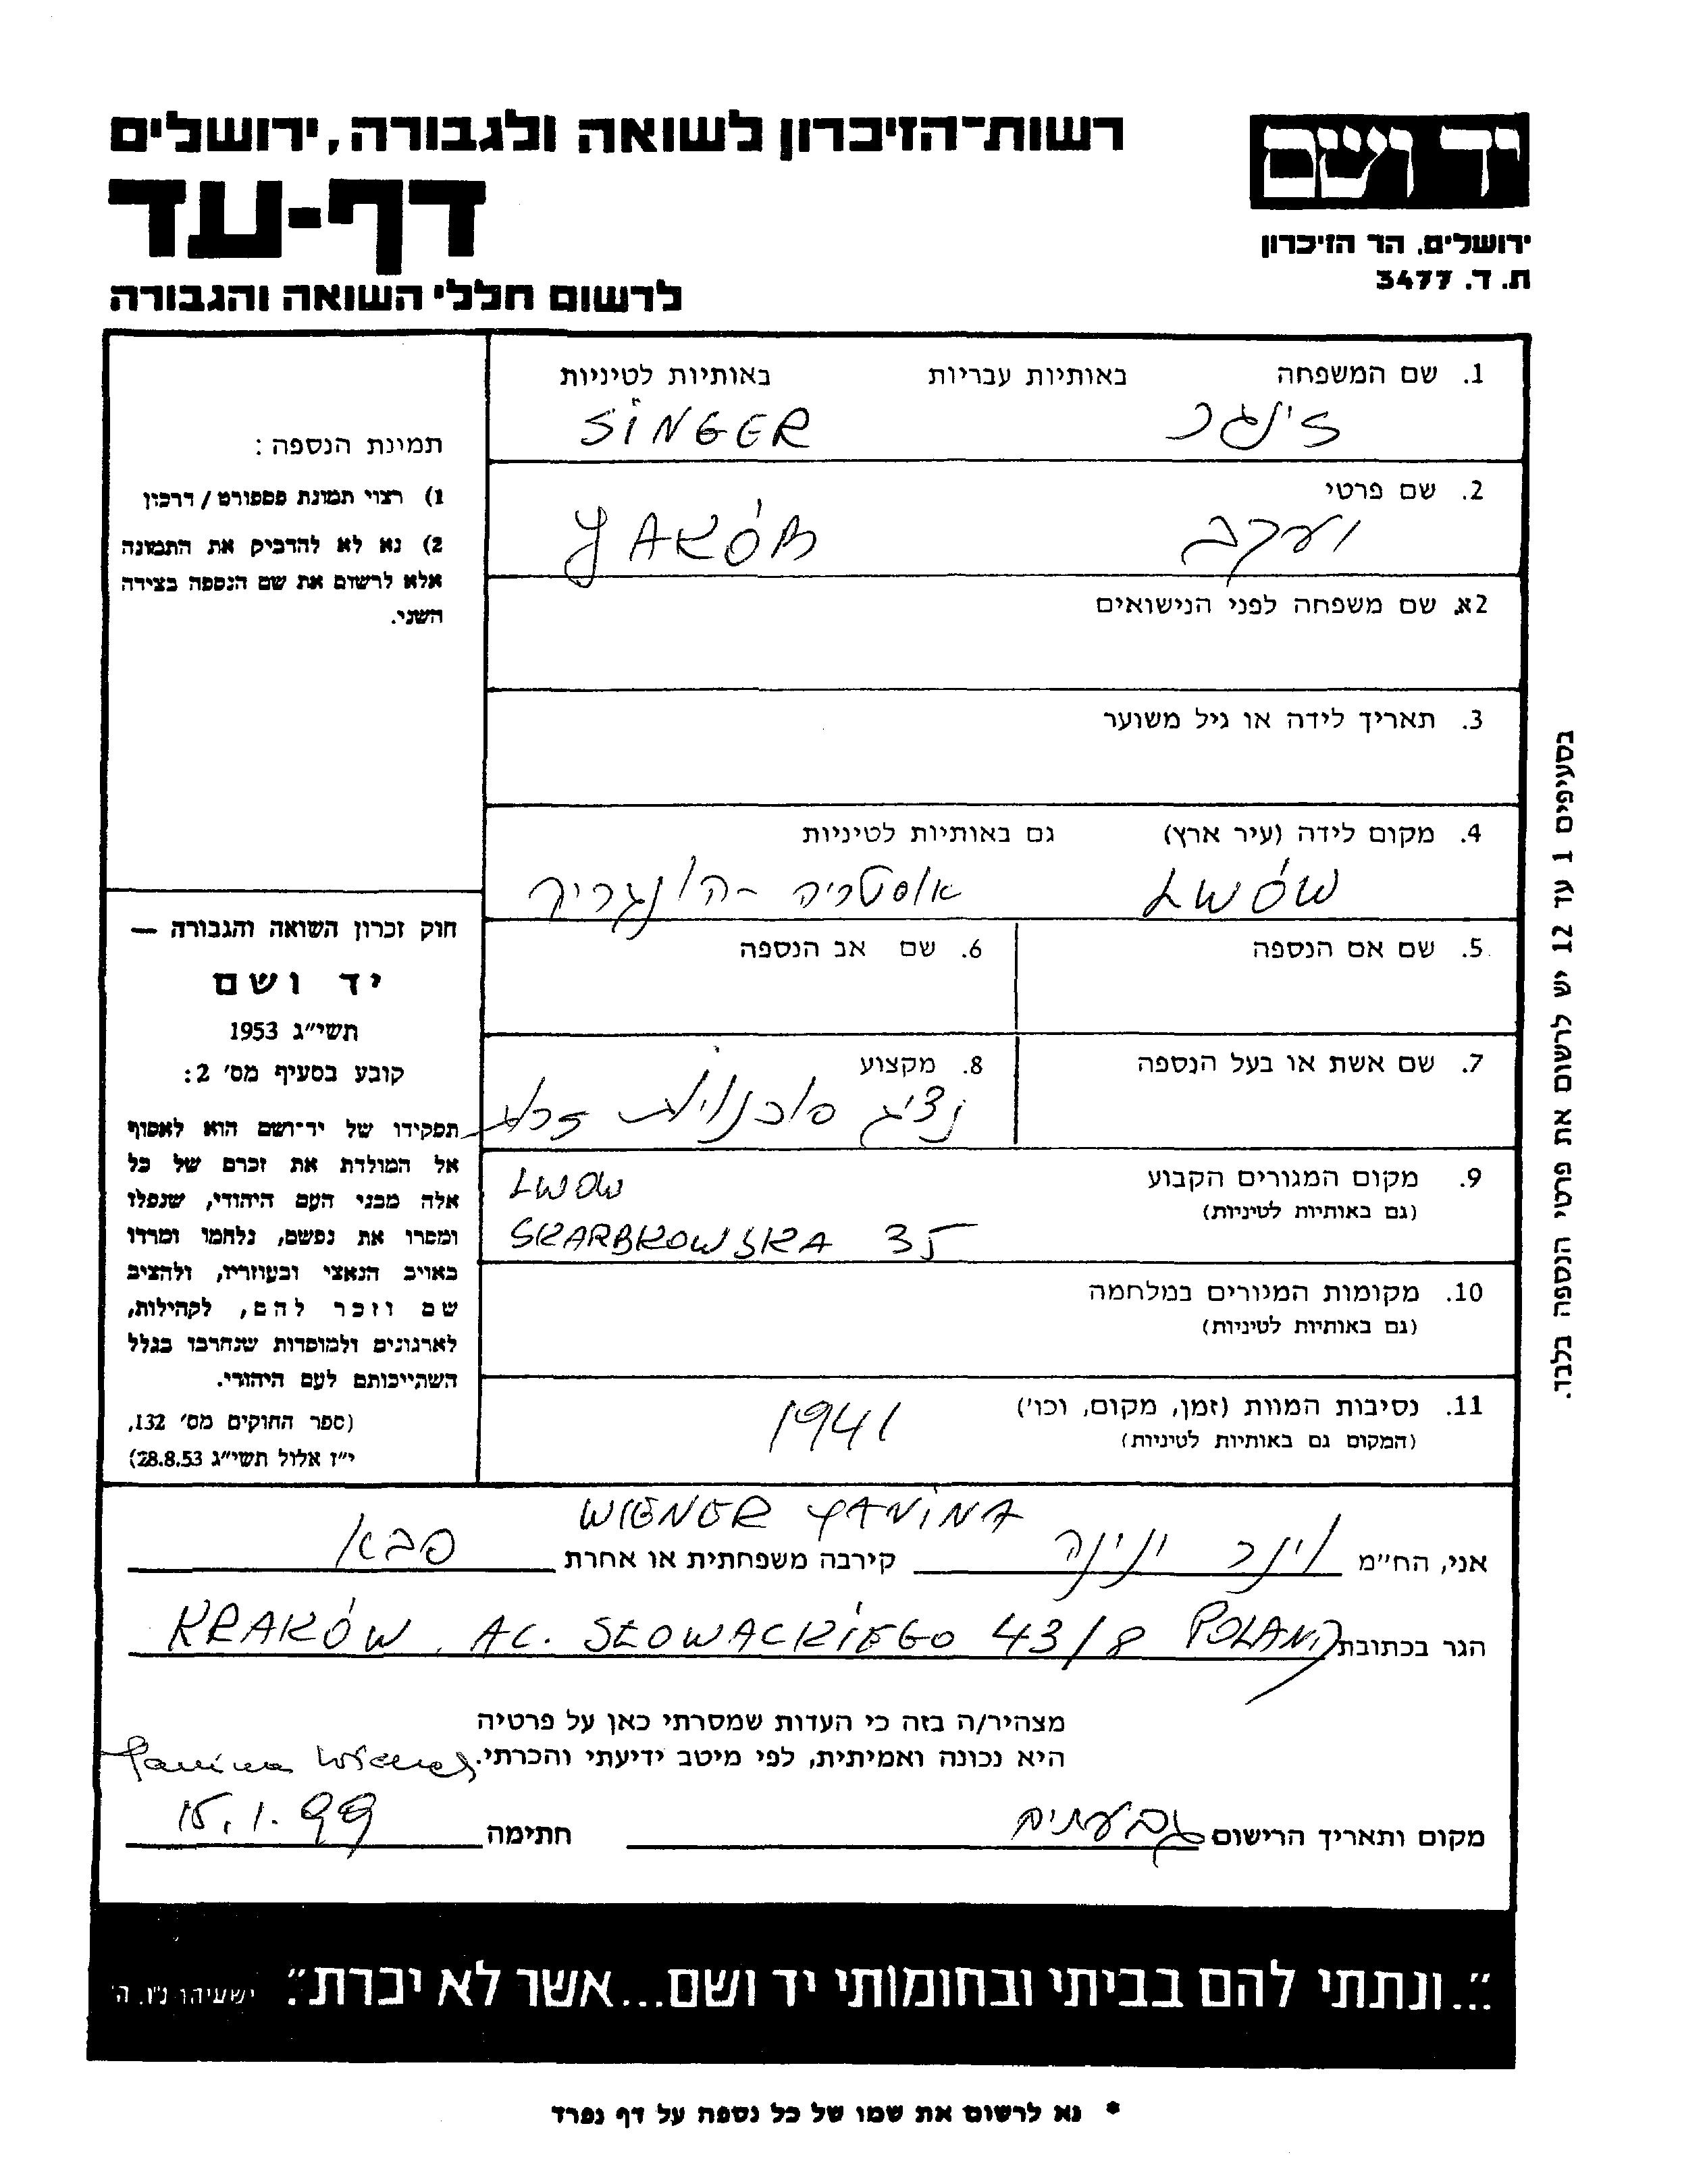 רשות־הזיכרון לשואה ולגבורה, ירושלים
דף-עד
לרשום חללי השואה והגבורה
יד ושם
ירושלים. הר הזיכרון
ת. ד. 3477
1. שם המשפחה באותיות עבריות באותיות לטיניות
זינגר SINGER
2. שם פרטי
יעקב YAKÓB
2א. שם משפחה לפני הנישואים
3. תאריך לידה או גיל משוער
4. מקום לידה (עיר ארץ) גם באותיות לטיניות
LWÓW אוסטריה - הונגריה
5. שם אם הנספה 6. שם אב הנספה
7. שם אשת או בעל הנספה 8. מקצוע
נציג סוכנויות זרע
9. מקום המגורים הקבוע
(גם באותיות לטיניות)
LWOW
SKARBKOWSKA 35
10. מקומות המגורים במלחמה
(גם באותיות לטיניות)
11. נסיבות המוות (זמן, מקום, וכו')
(המקום גם באותיות לטיניות)
1941
תמונת הנספה:
1) רצוי תמונת פספורט / דרכון
2) נא לא להדביק את התמונה
אלא לרשום את שם הנספה בצידה
השני.
חוק זכרון השואה והגבורה —
יד ושם
תשי"ג 1953
קובע בסעיף מס' 2:
תפקידו של יד־ושם הוא לאסוף
אל המולדת את זכרם של כל
אלה מבני העם היהודי, שנפלו
ומסרו את נפשם, נלחמו ומרדו
באויב הנאצי ובעוזריו, ולהציב
שם וזכר להם, לקהילות,
לארגונים ולמוסדות שנחרבו בגלל
השתייכותם לעם היהודי.
(ספר החוקים מס' 132,
י"ז אלול תשי"ג 28.8.53)
בסעיפים 1 עד 12 יש לרשום את פרטי הנספה בלבד.
WIENER YANINA
אני, הח"מ וינר ינינה קירבה משפחתית או אחרת סבא
הגר בכתובת KRAKÓW, AL. SŁOWACKIEGO 43/8 POLAND
מצהיר/ה בזה כי העדות שמסרתי כאן על פרטיה
היא נכונה ואמיתית, לפי מיטב ידיעתי והכרתי. Janina Wiener
מקום ותאריך הרישום גבעתים חתימה 15.1.99
"...ונתתי להם בביתי ובחומותי יד ושם...אשר לא יכרת". ישעיהו נ"ו. ה'
* נא לרשום את שמו של כל נספה על דף נפרד